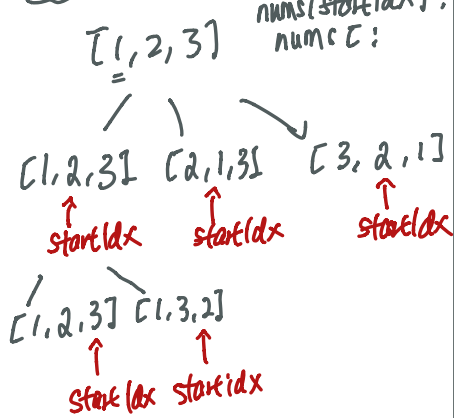 nums[startIdx] :
nums [ :
[1, 2, 3]
[1, 2, 3] [2, 1, 3] [3, 2, 1]
startIdx startIdx startIdx
[1, 2, 3] [1, 3, 2]
startIdx startidx